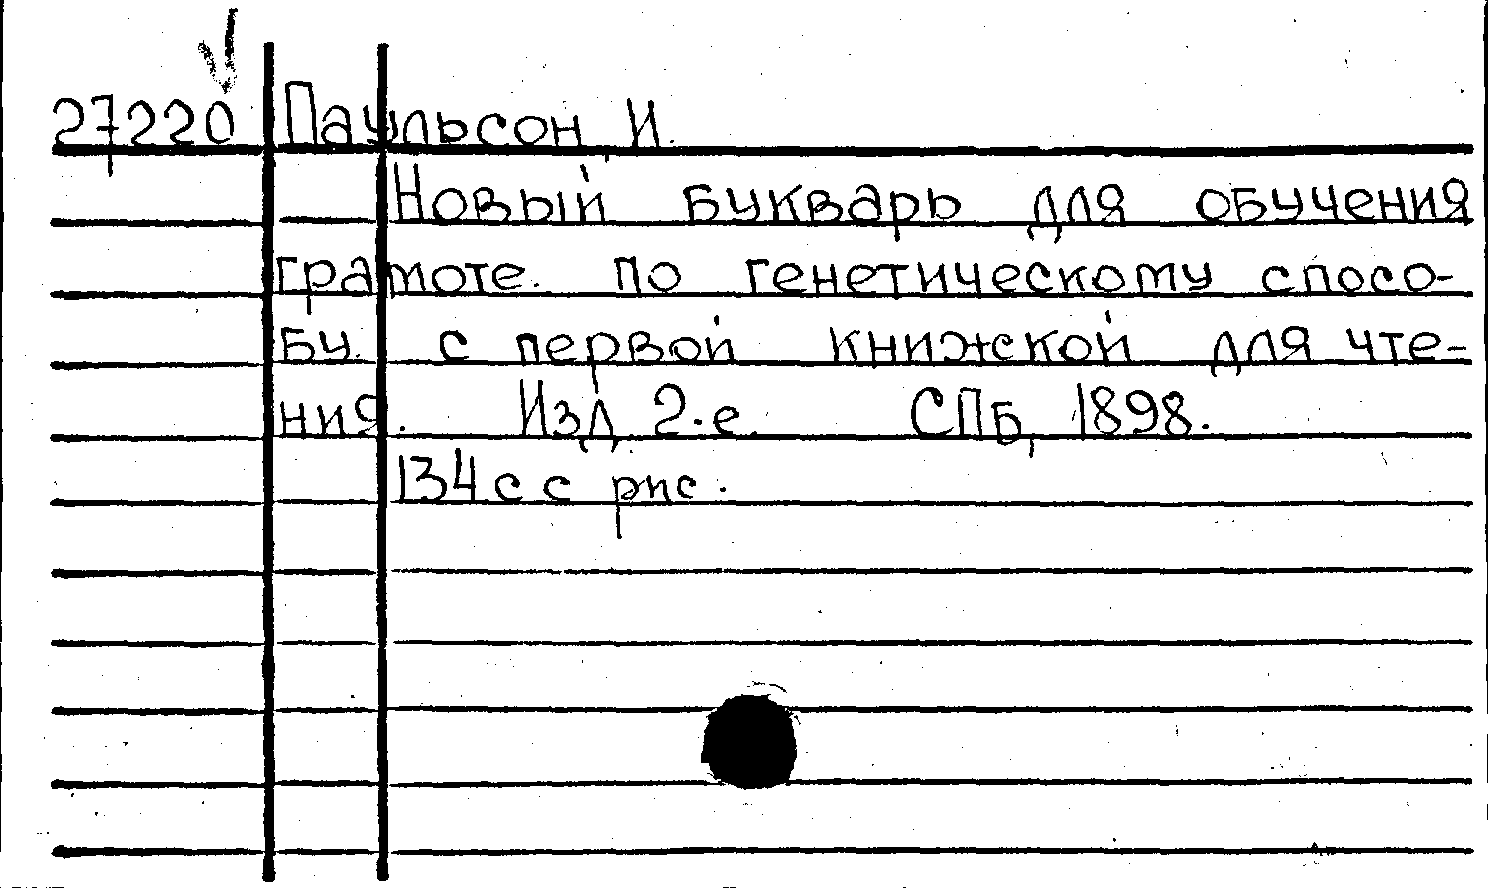 27220 Паульсон, И.
Новый букварь для обучения
грамоте. по генетическому спосо-
бу. с первой книжской для чте-
ния. Изд. 2-е. СПб, 1898.
134 с с рис.